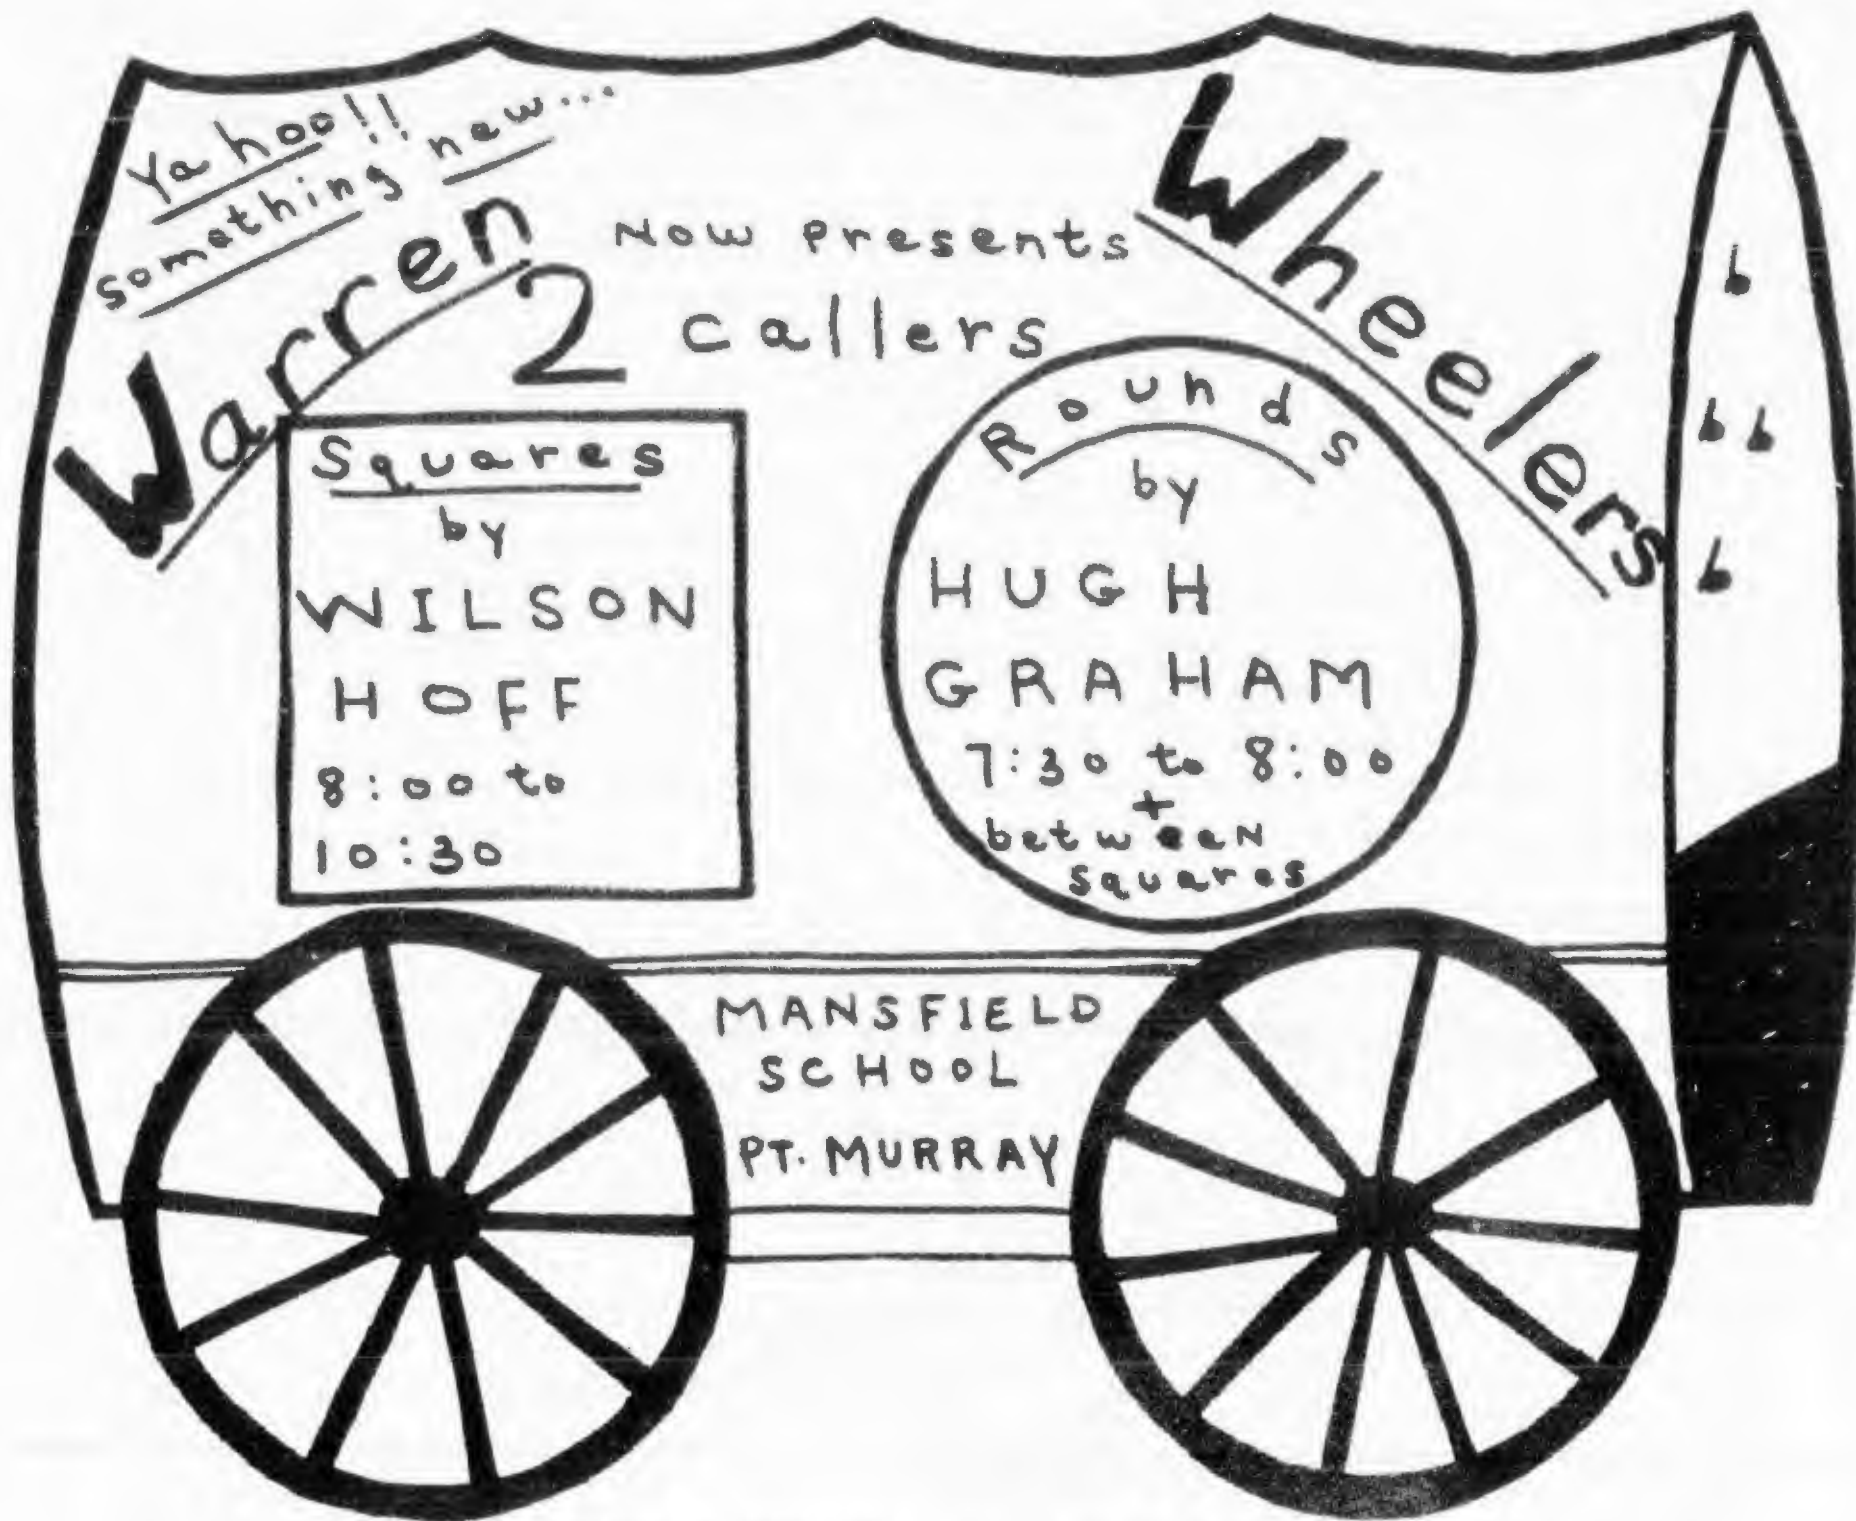 Yahoo!!
something new...
Warren Wheelers
Now Presents
2 Callers
Squares
by
WILSON
HOFF
8:00 to
10:30
Rounds
by
HUGH
GRAHAM
7:30 to 8:00
+
between
squares
b
b b
b
MANSFIELD
SCHOOL
PT. MURRAY